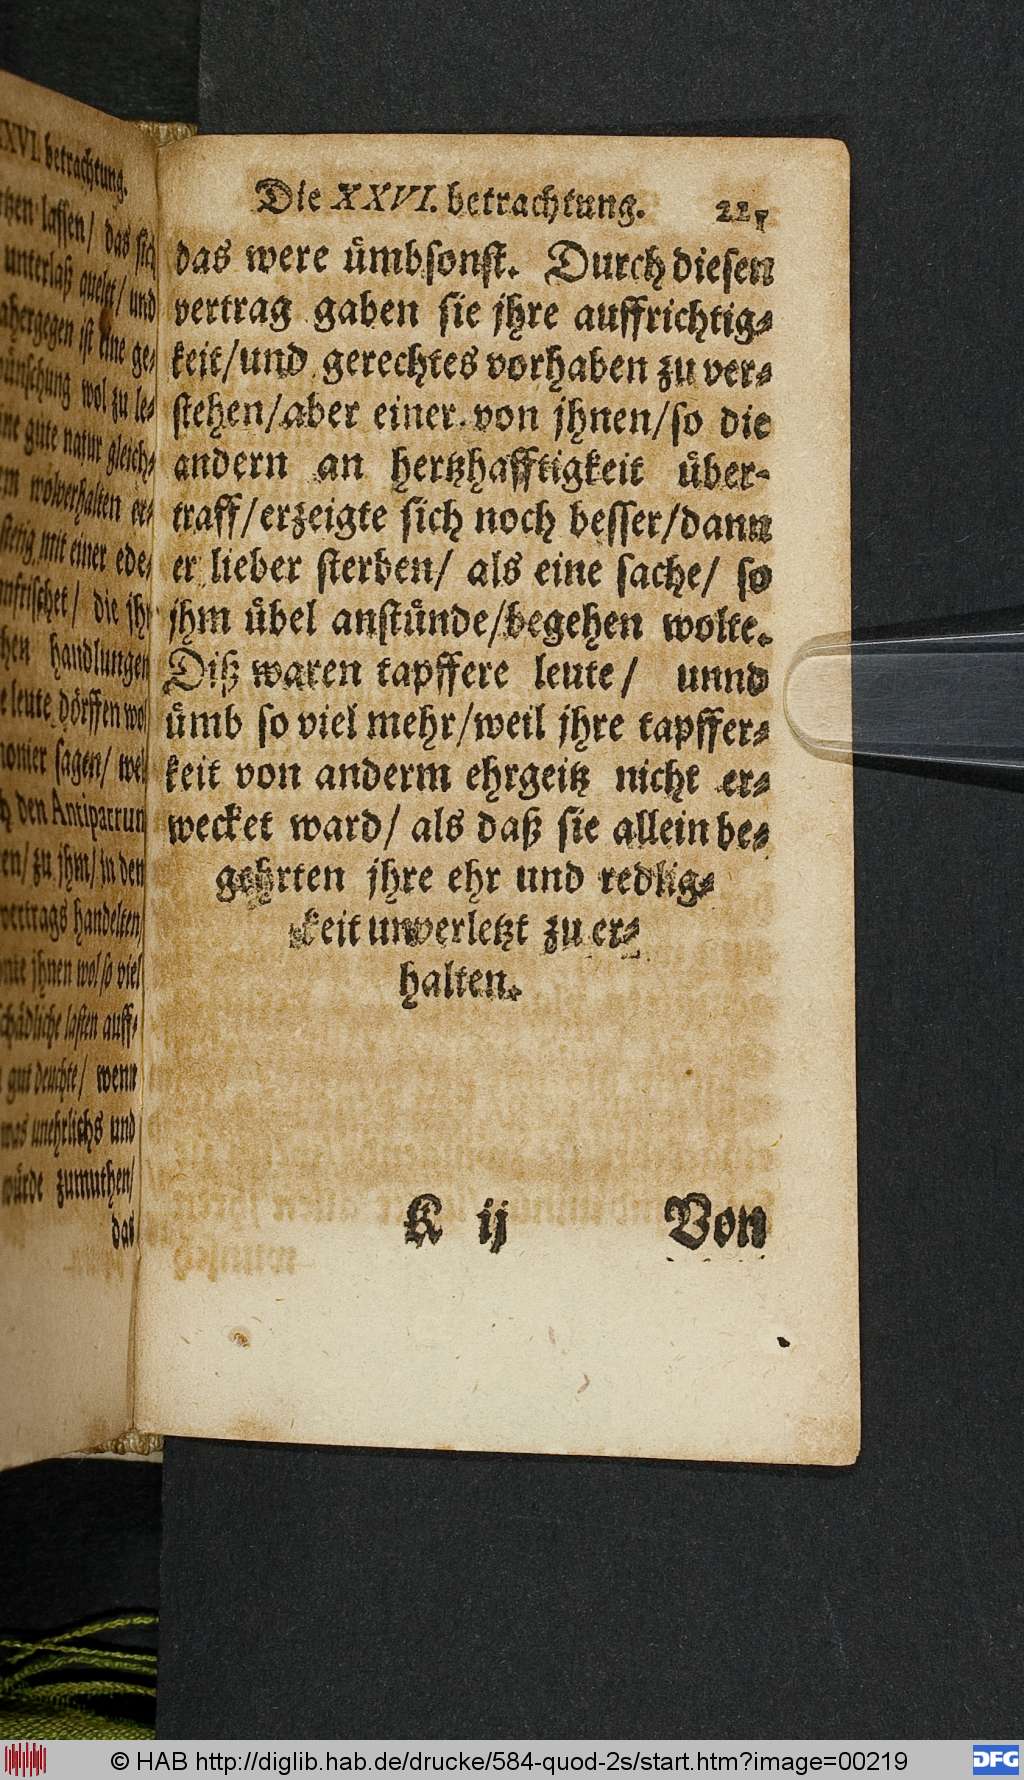 XXVI. betrachtung.
lassen/ das sich
unterlaß quelet/ und
ist eine ge-
wol zu le-
gute natur gleich-
wolverhalten er-
stetig mit einer ede-
die jhr
handlungen
leute dörffen wol
sagen/ weil
den Antipatrum
zu jhm/ in den
vertrags handelten/
jhnen wol so viel
schädliche lasten auff-
gut deuchte/ wenn
was unehrlichs und
würde zumuthen/
das
Die XXVI. betrachtung. 22
das were ümbsonst. Durch diesen
vertrag gaben sie jhre auffrichtig-
keit/und gerechtes vorhaben zu ver-
stehen/aber einer von jhnen/so die
andern an hertzhafftigkeit über-
traff/erzeigte sich noch besser/dann
er lieber sterben/ als eine sache/ so
jhm übel anstünde/begehen wolte.
Diß waren tapffere leute/ unnd
ümb so viel mehr/weil jhre tapffer-
keit von anderm ehrgeitz nicht er-
wecket ward/ als daß sie allein be-
gehrten jhre ehr und redlig-
keit unverletzt zu er-
halten.
K ij Von
© HAB http://diglib.hab.de/drucke/584-quod-2s/start.htm?image=00219
DFG